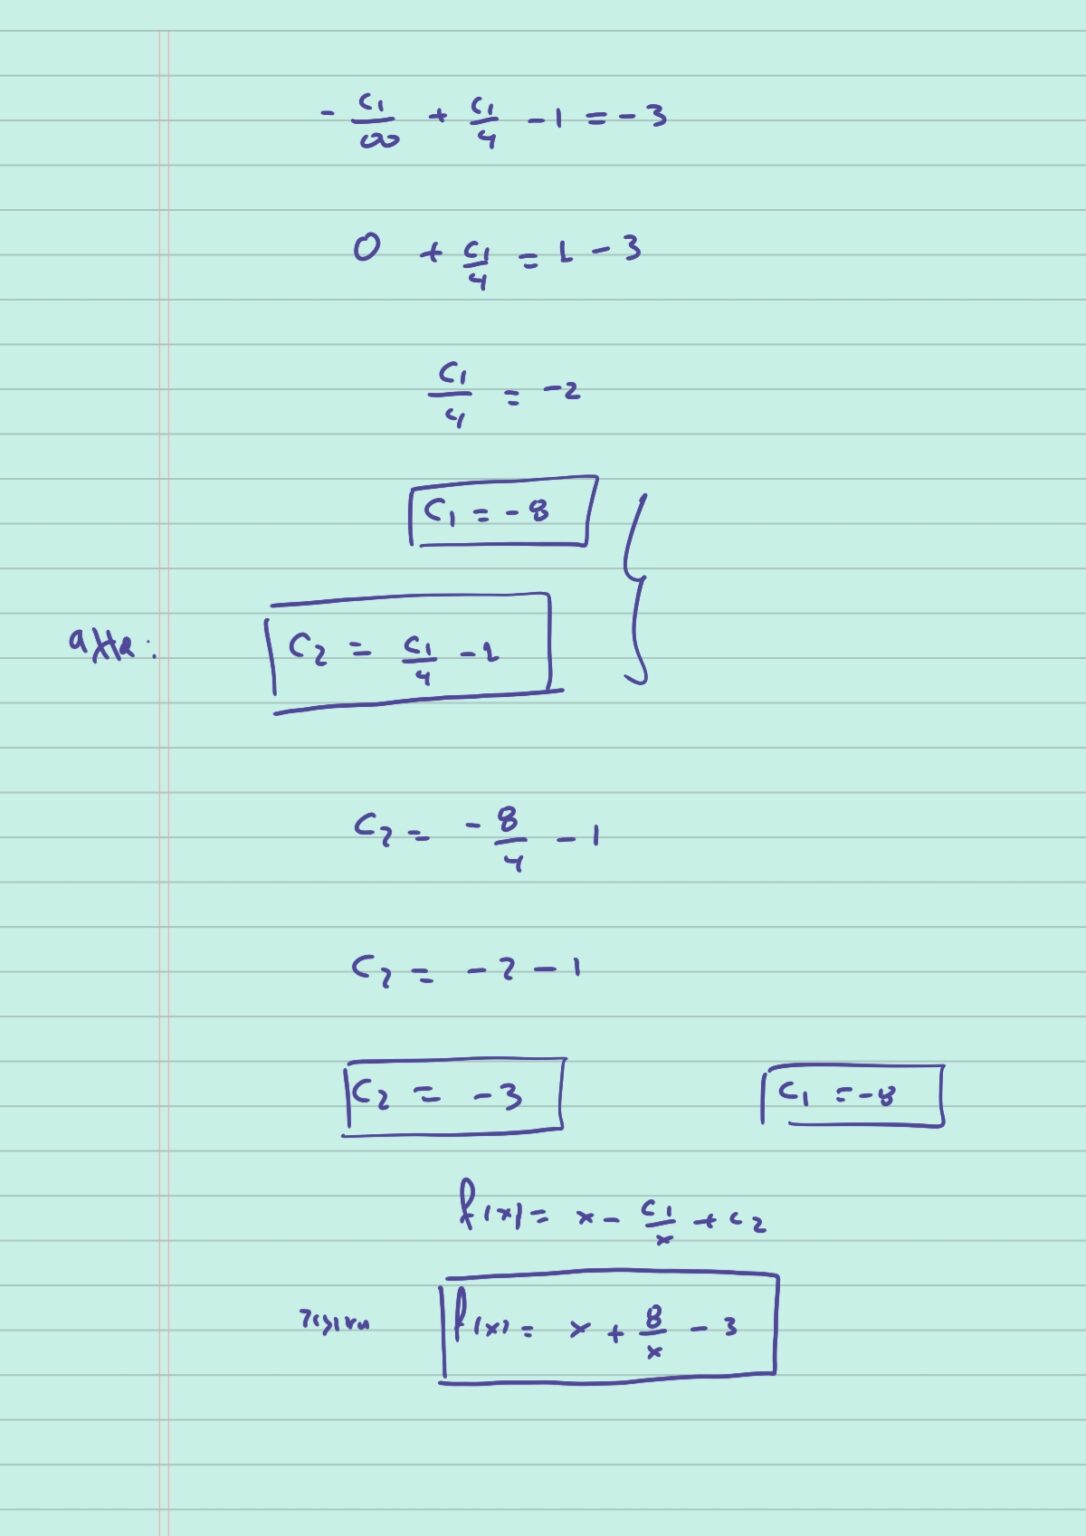 - C₁/∞ + C₁/4 - 1 = - 3
0 + C₁/4 = 1 - 3
C₁/4 = -2
C₁ = - 8
C₂ = C₁/4 - 1
C₂ = - 8/4 - 1
C₂ = - 2 - 1
C₂ = - 3 C₁ = - 8
f(x) = x - C₁/x + C₂
f(x) = x + 8/x - 3